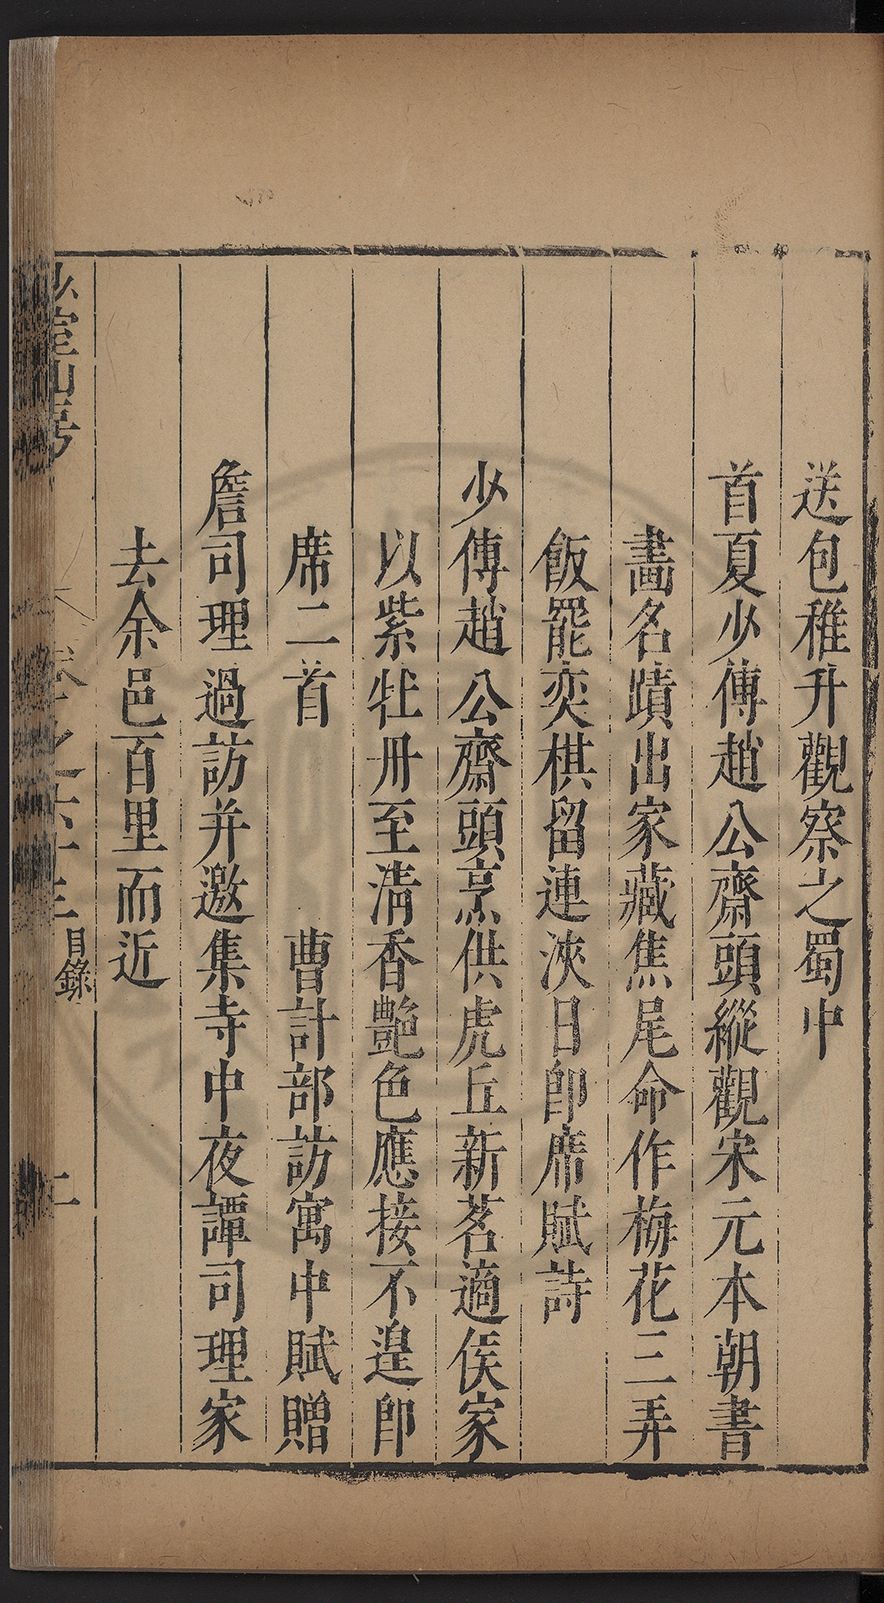 送包稚升觀察之蜀中
首夏少傅趙公齋頭縱觀宋元本朝書
畫名蹟出家藏焦尾命作梅花三弄
飯罷奕棋留連浹日卽席賦詩
少傅趙公齋頭烹供虎丘新茗適侯家
以紫牡丹至清香艷色應接不遑卽
席二首 曹計部訪寓中賦贈
詹司理過訪并邀集寺中夜譚司理家
去余邑百里而近
少室山房 卷之六十三 目錄 二